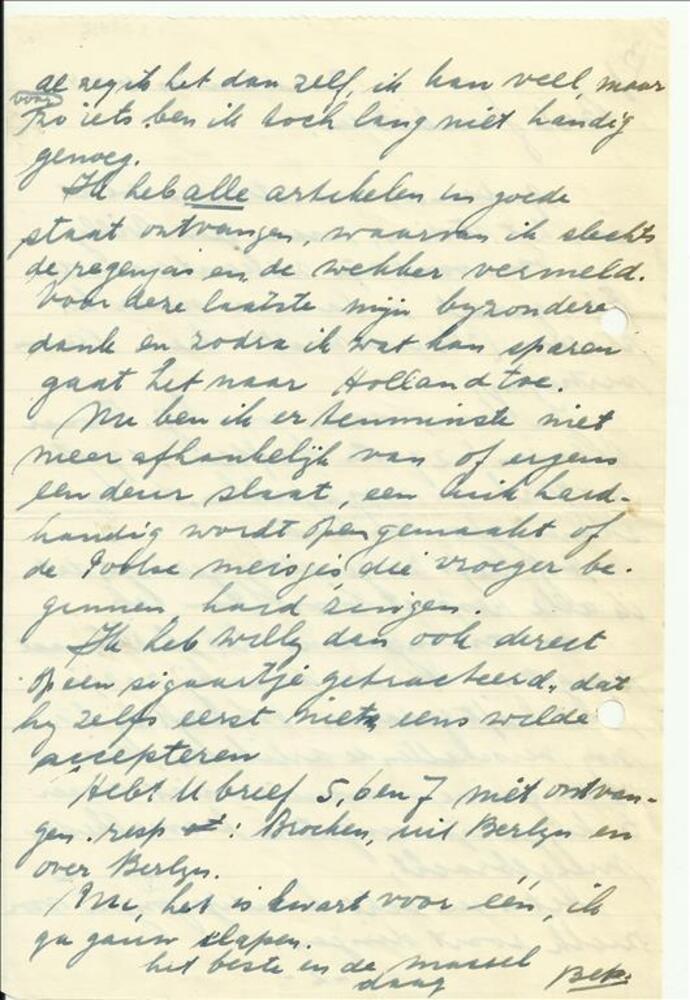 al zeg ik het dan zelf, ik kan veel, maar
voor
zo iets ben ik toch lang niet handig
genoeg.
Ik heb alle artikelen in goede
staat ontvangen, waarvan ik slechts
de regenjas en de wekker vermeld.
Voor deze laatste mijn byzondere
dank en zodra ik wat kan sparen
gaat het naar Holland toe.
Nu ben ik er tenminste niet
meer afhankelijk van of ergens
een deur slaat, een luik hard-
handig wordt opengemaakt of
de Poolse meisjes die vroeger be-
ginnen, hard zingen.
Ik heb Willy dan ook direct
op een sigaartje getracteerd, dat
hy zelfs eerst niet eens wilde
accepteren
Hebt U brief 5, 6 en 7 niet ontvan-
gen. resp : Brocken, uit Berlyn en
over Berlyn.
Nu, het is kwart voor één, ik
ga gauw slapen.
het beste en de massel
daag
Bep.